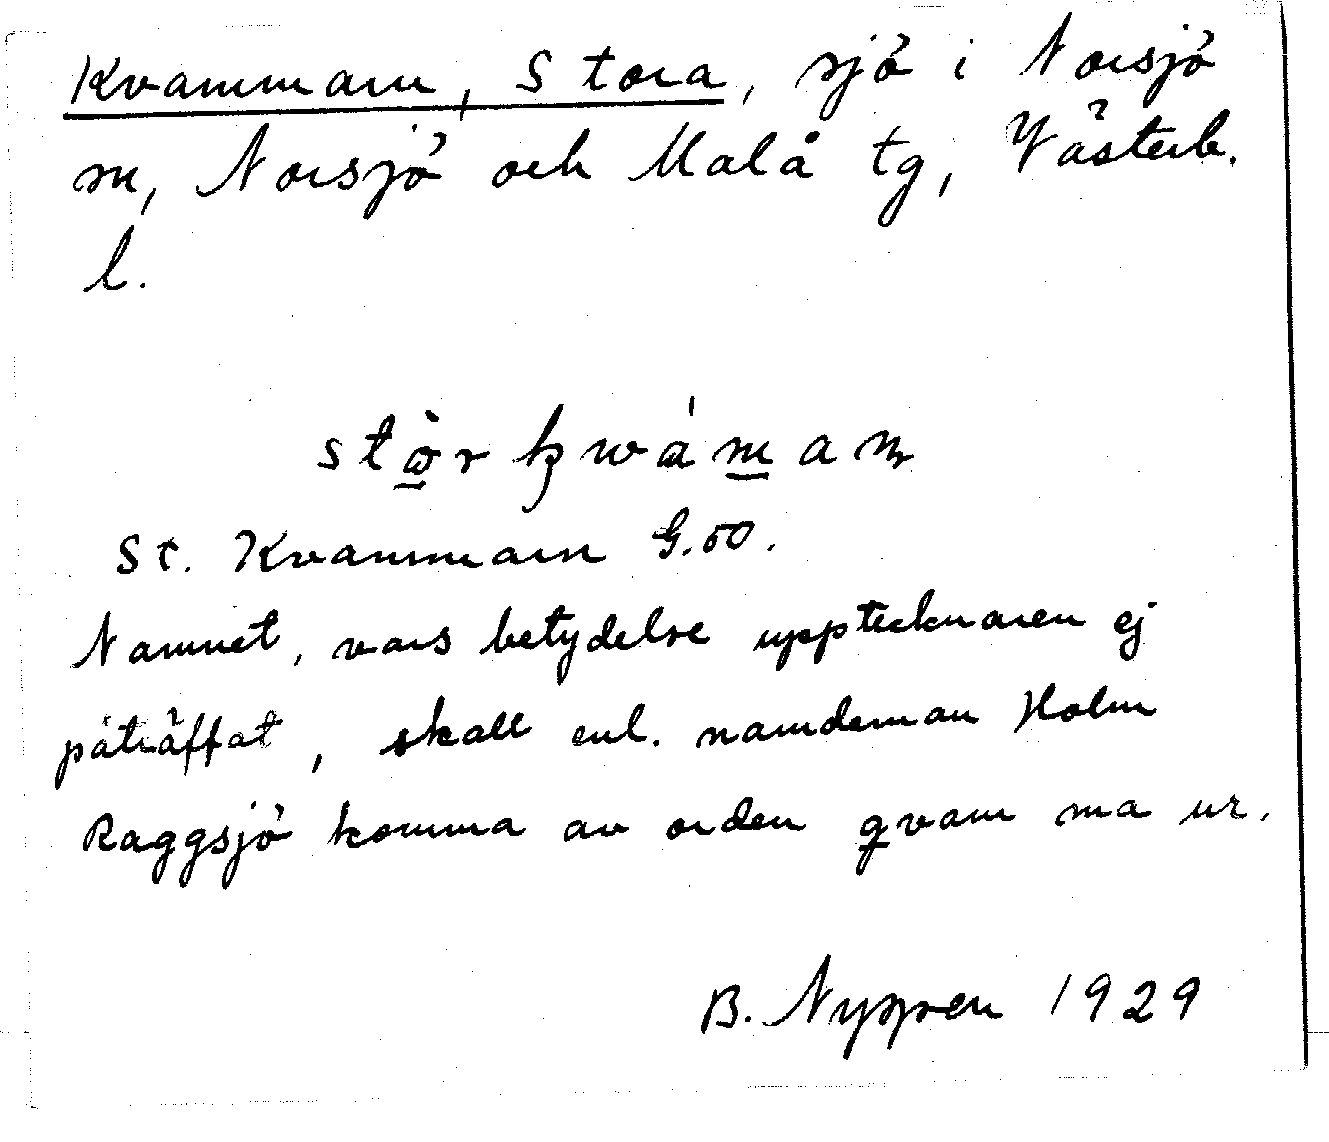 Kvammarn, Stora, sjö i Norsjö
sn, Norsjö och Malå tg, Västerb.
l.
St. Kvammarn G.50.
Namnet, vars betydelse upptecknaren ej
påträffat, skall enl. nämndeman Holm
Raggsjö komma av orden qvarn ma ur.
B. 1929